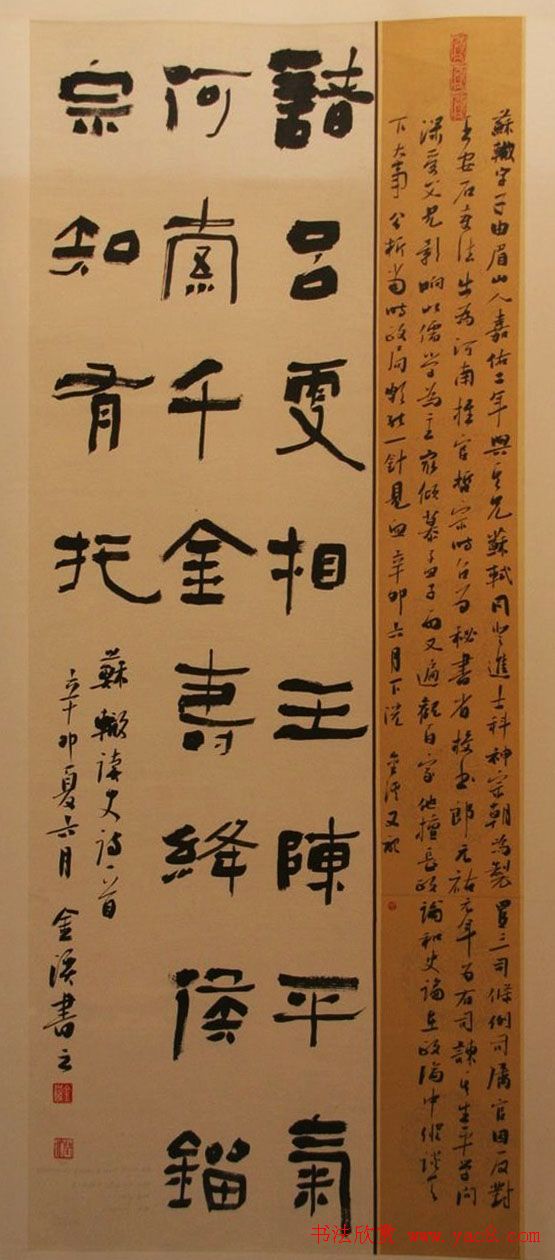 蘇轍字子由眉山人嘉佑二年與其兄蘇軾同登進士科神宗朝為製置三司條例司屬官因反對
王安石變法出為河南推官哲宗時召為秘書省校書郎元祐元年為右司諫其生平學問
深受父兄影响以儒學為主最傾慕孟子而又遍觀百家他擅長政論和史論在政論中縱談天
下大事分析當時政局頗能一針見血辛卯六月下浣金溪又記
諸呂更相王陳平氣
何索千金壽絳侯鎦
宗知有托
蘇轍讀史詩一首
辛卯夏六月金溪書之
书法欣赏 www.yac8.com